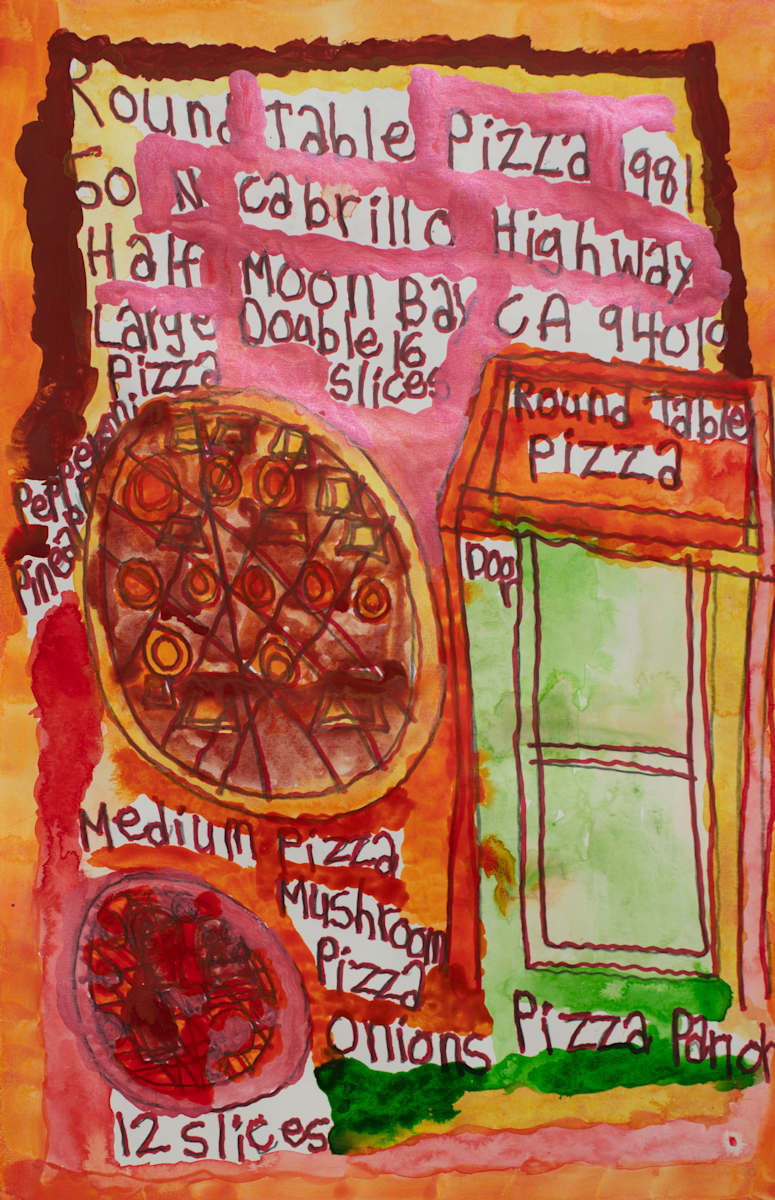 Round table Pizza 1981
60 N Cabrillo Highway
Half Moon Bay CA 94019
Large Double 16
Pizza slices
Pepperoni
Pineapple
Round table
Pizza
Door
Medium Pizza
Mushroom
Pizza
onions
Pizza Parlor
12 slices